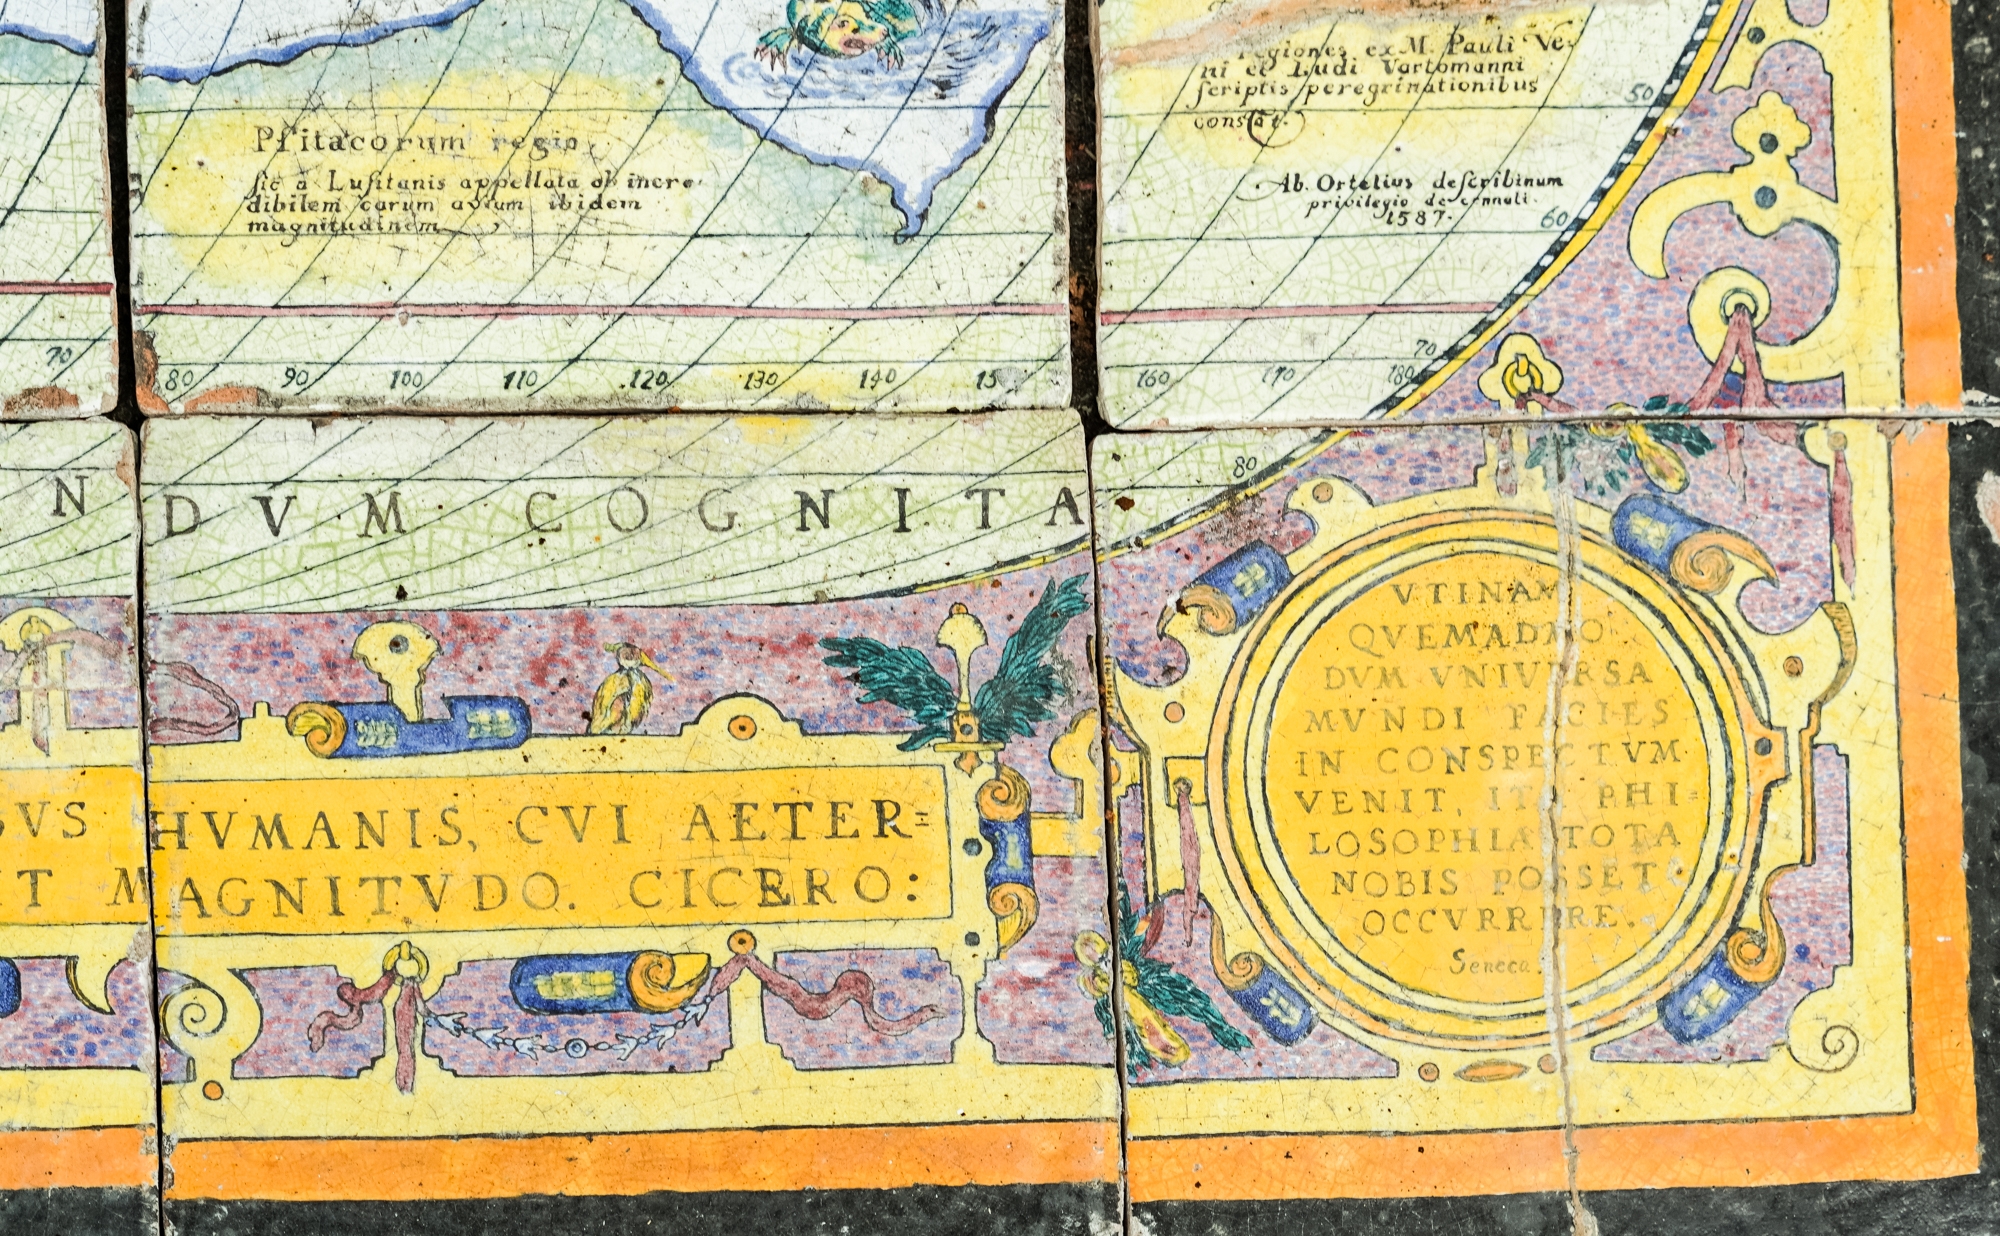 regiones ex M. Pauli Ve-
ni et Ludi Vartomanni
scriptis peregrinationibus
constat.
50
Psitacorum regio,
sic a Lusitanis appellata ob incre-
dibilem earum avium ibidem
magnitudinem
Ab. Ortelius describinum
privilegio decennali.
1587.
60
70
70
80 90 100 110 .120. 130 140 15 160 170 180
80
N D V M · COGNITA
VTINAM
QVEMADMO
DVM VNIVERSA
MVNDI FACIES
IN CONSPECTVM
VENIT, ITA PHI=
LOSOPHIA TOTA
NOBIS POSSET
OCCVRRERE.
Seneca.
BVS HVMANIS, CVI AETER=
IT MAGNITVDO. CICERO: